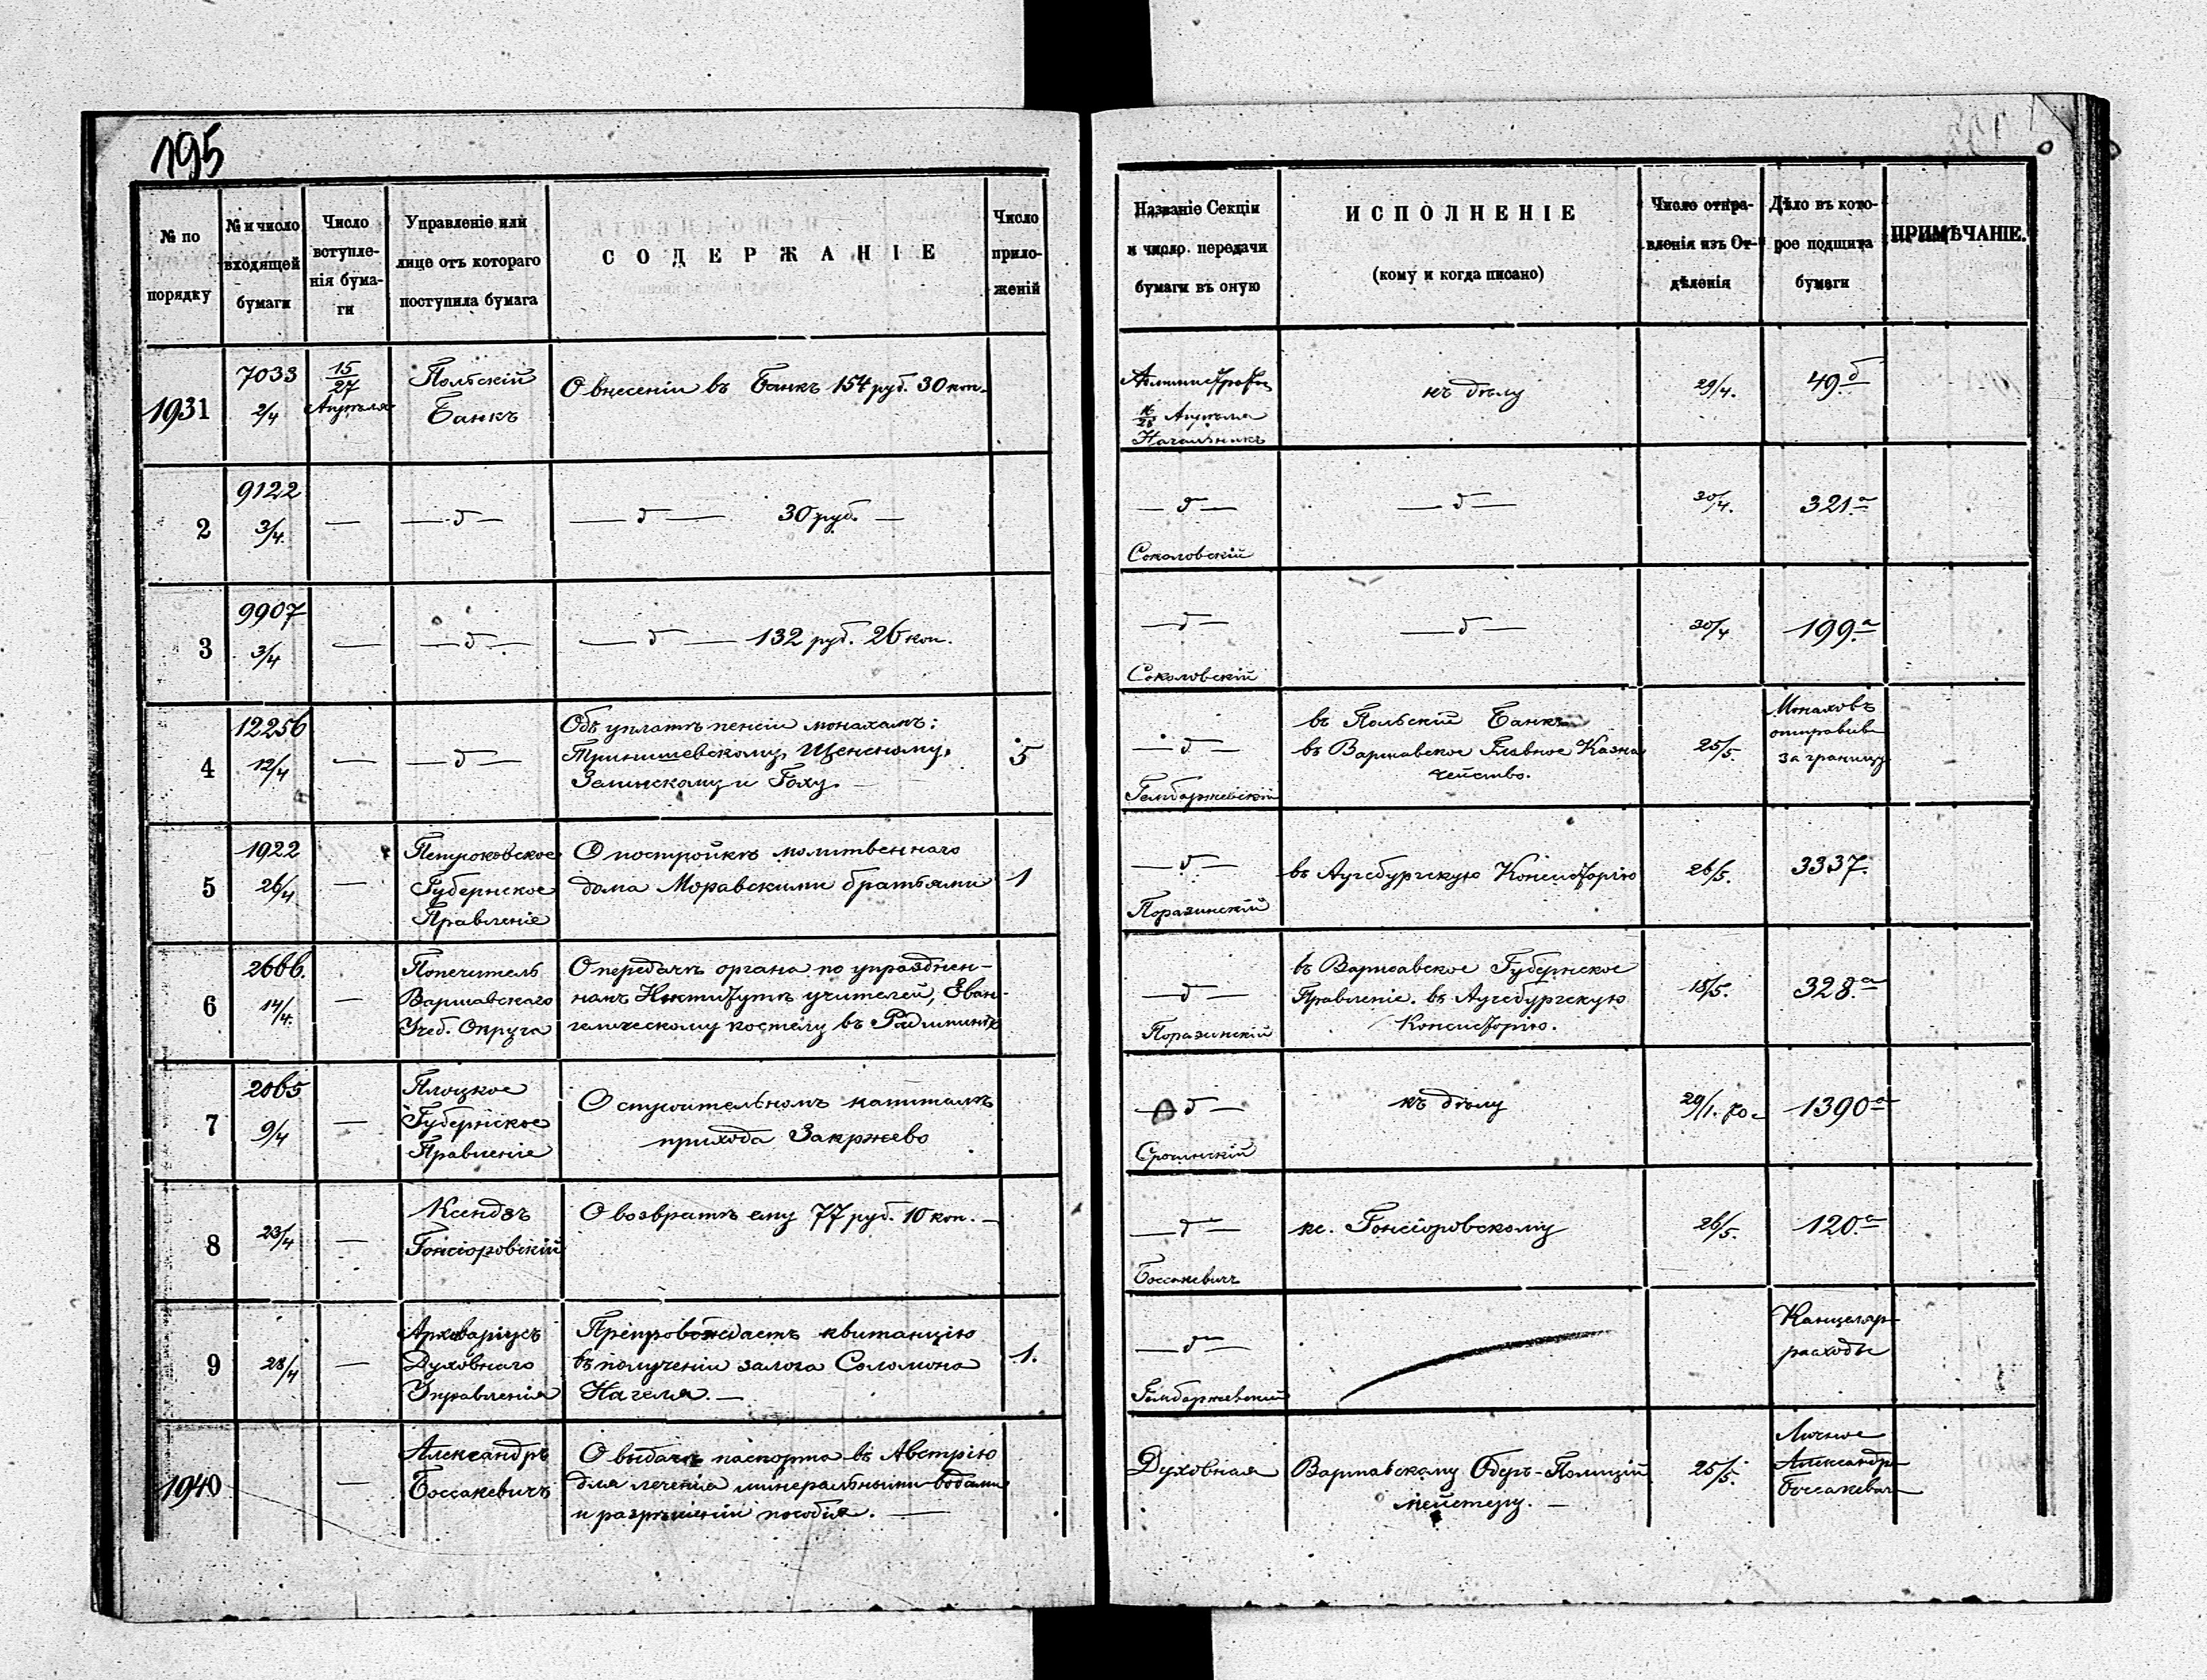 195
№ по
порядку
№ и число
входящей
бумаги
Число
вступле-
нія бума-
ги
Управленіе или
лице отъ котораго
поступила бумага
СОДЕРЖАНІЕ
Число
прило-
женій
Названіе Секціи
и число передачи
бумаги въ оную
ИСПОЛНЕНІЕ
(кому и когда писано)
Число отпра-
вленія изъ От-
дѣленія
Дѣло въ кото-
рое подшита
бумаги
ПРИМѢЧАНІЕ.
1931
7033
2/4
15/27
Апрѣля
Польскій
Банкъ
О внесеніи въ Банкъ 154 руб. 30 коп.
16/28 Апрѣля
къ дѣлу
29/4.
49.б
2
9122
3/4.
—
— д —
— д — 30 руб. —
— д —
Соколовскій
— д —
30/4.
321.а
3
9907
3/4
—
— д —
— д — 132 руб. 26 коп.
— д —
Соколовскій
— д —
30/4
199.а
4
12256
12/4
—
— д —
Объ уплатѣ пенсіи монахамъ:
Щенсному,
Залинскому и Гоху. —
5
— д —
Гембаржевскій
въ Польскій Банкъ
въ Варшавское Главное Казна
чейство.
25/5.
Монаховъ
отправив
за границу
5
1922
26/4
—
Петроковское
Губернское
Правленіе
О постройкѣ молитвеннаго
дома Моравскими братьями
1
— д —
Поразинскій
въ Аугсбургскую Консисторію
26/5.
3337.
6
2666.
14/4.
—
Попечитель
Варшавскаго
Учеб. Округа
О передачѣ органа по упразднен-
номъ Институтѣ учителей, Еван-
гелическому костелу въ
— д —
Поразинскій
въ Варшавское Губернское
Правленіе. въ Аугсбургскую
Консисторію.
18/5.
328.а
7
2065
9/4
—
Плоцкое
Губернское
Правленіе
О строительномъ капиталѣ
прихода Закржево
— д —
къ дѣлу
29/1.
1390а
8
23/4
—
Ксендзъ
Гонсіоровскій
О возвратѣ ему 77 руб. 10 коп. —
— д —
Боссакевичъ
кс. Гонсіоровскому
26/5.
120.а
9
28/4
—
Архиваріусъ
Духовнаго
Управленія
Препровождаетъ квитанцію
въ полученіи залога Соломона
Нагеля. —
1.
— д —
Гембаржевскій
Канцеляр
расходы
1940
—
Александръ
Боссакевичъ
О выдачѣ паспорта въ Австрію
для леченія минеральными водами
и разрѣшеніи пособія. —
Духовная
Варшавскому Оберъ-Полицій
мейстеру. —
25/5.
Личное
Александр
Боссакевич